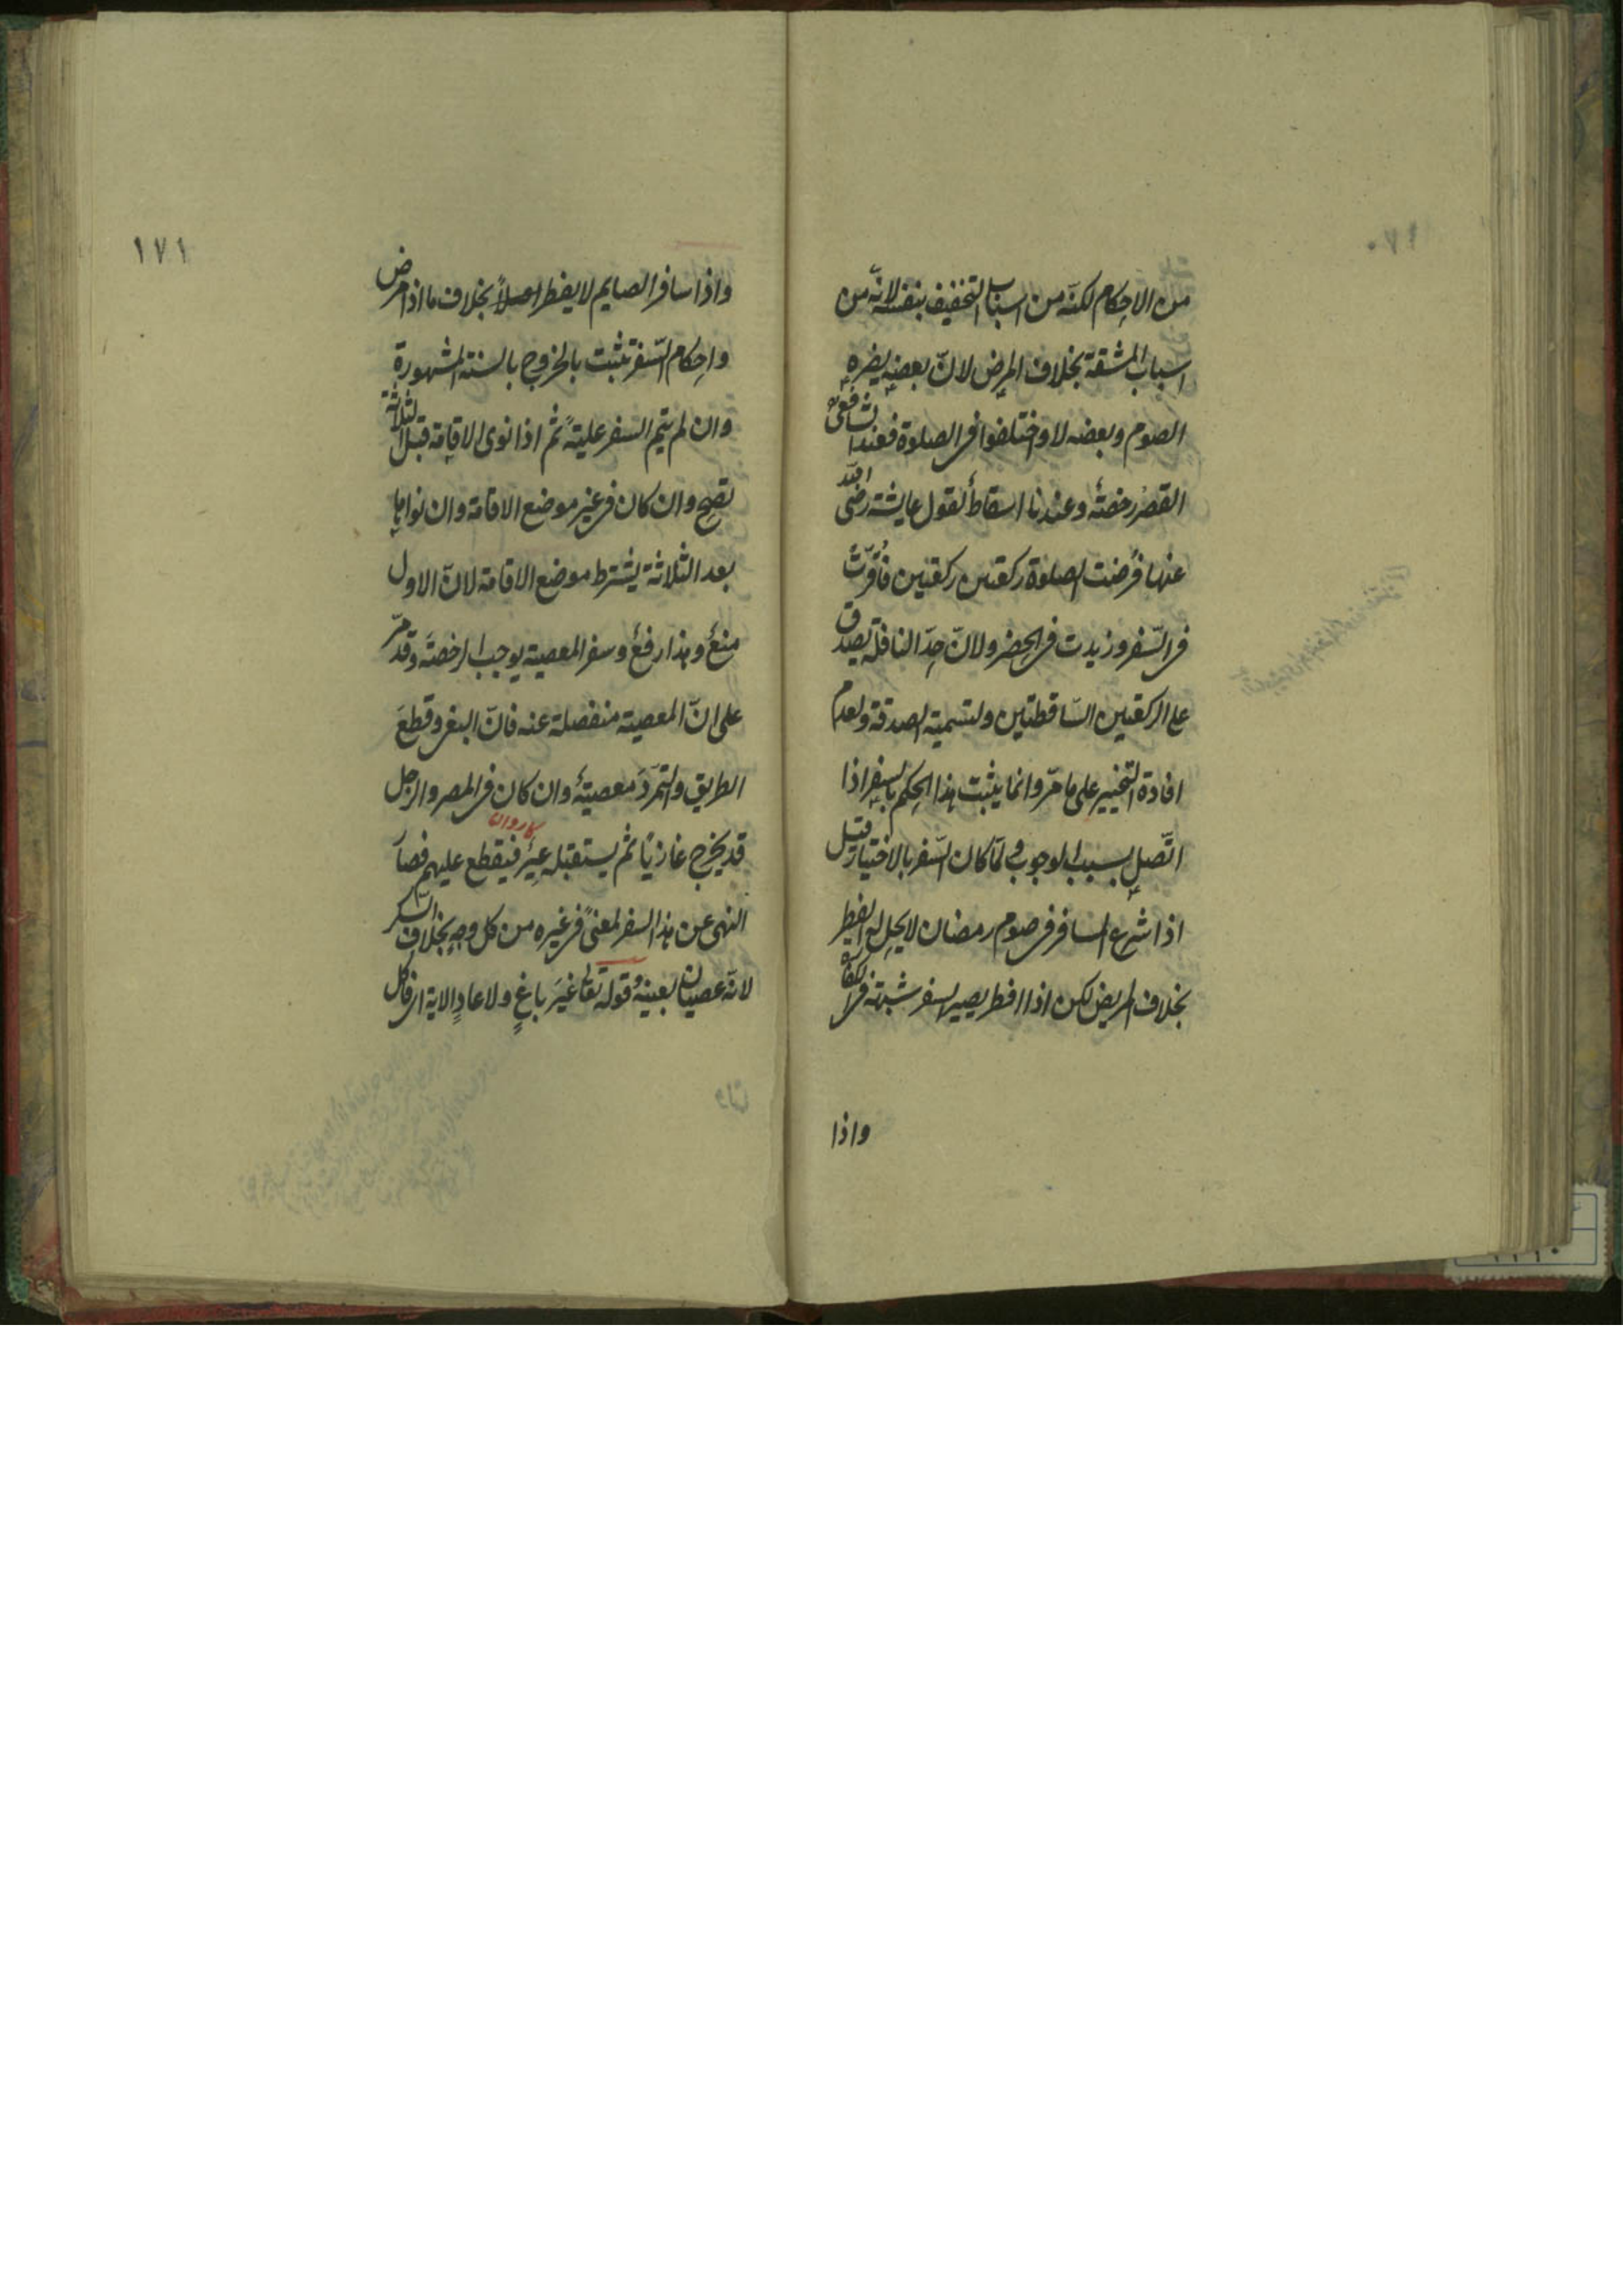 من الاحكام لكنه من اسباب التخفيف بنفسه لانّه من
اسباب المشقة بخلاف المرض لانّ بعضه يضره
الصوم وبعضه لا واختلفوا فى الصلوة فعند الشافعى
القصر رخصة وعندنا اسقاط لقول عايشة رضى الله
عنها فرضت الصلوة ركعتين ركعتين فاقرّت
فى السّفر وزيدت فى الحضر ولانّ حدّ النافلة يصدق
على الركعتين السّاقطتين ولتسمية الصدقة ولعدم
افادة التخيير على ما مرّ وانما يثبت هذا الحكم بالسفر اذا
اتّصل بسبب الوجوب ولمّا كان السّفر بالاختيار قيل
اذا شرع المسافر فى صوم رمضان لا يحل له الفطر
بخلاف المريض لكن اذا افطر يصير السفر شبهة فى الكفارة
واذا
١٧١
واذا سافر الصايم لا يفطر اصلاً بخلاف ما اذا مرض
واحكام السّفر تثبت بالخروج بالسنة المشهورة
وان لم يتم السفر علية ثم اذا نوى الاقامة قبل الثلاثة
تصح وان كان فى غير موضع الاقامة وان نواها
بعد الثلاثة يشترط موضع الاقامة لانّ الاول
منع وهذا رفع وسفر المعصية يوجب الرخصة وقد مرّ
على انّ المعصية منفصلة عنه فانّ البغى وقطع
الطريق والتمرّد معصية وان كان فى المصر والرجل
كاروان
قد يخرج غازيًا ثم يستقبله عير فيقطع عليهم فصار
النهى عن هذا السفر لمعنى فى غيره من كل وجه بخلاف السكر
لانه عصيان بعينه وقوله تعالى غير باغٍ ولا عادٍ الاية اى فاكل